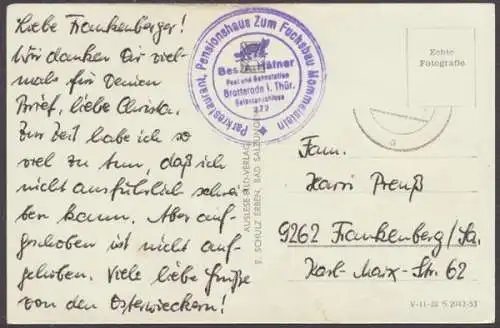 Liebe Frankenberger!
Wir danken Dir viel-
mals für Deinen
Brief, liebe Christa.
Zur Zeit habe ich so
viel zu tun, daß ich
nicht ausführlich schrei-
ben kann. Aber auf-
geschoben ist nicht auf-
gehoben. Viele liebe Grüße
von den Osterwieckern!
Parkrestaurant, Pensionshaus Zum Fuchsbau Mommelstein
Bes. Häfner
Post und Bahnstation
Brotterode i. Thür.
277
AUSLESE-BILD-VERLAG
F. SCHULZ ERBEN, BAD SALZUNGEN
Echte
Fotografie
Fam.
Harri Preuß
9262 Frankenberg/Sa.
Karl-Marx-Str. 62